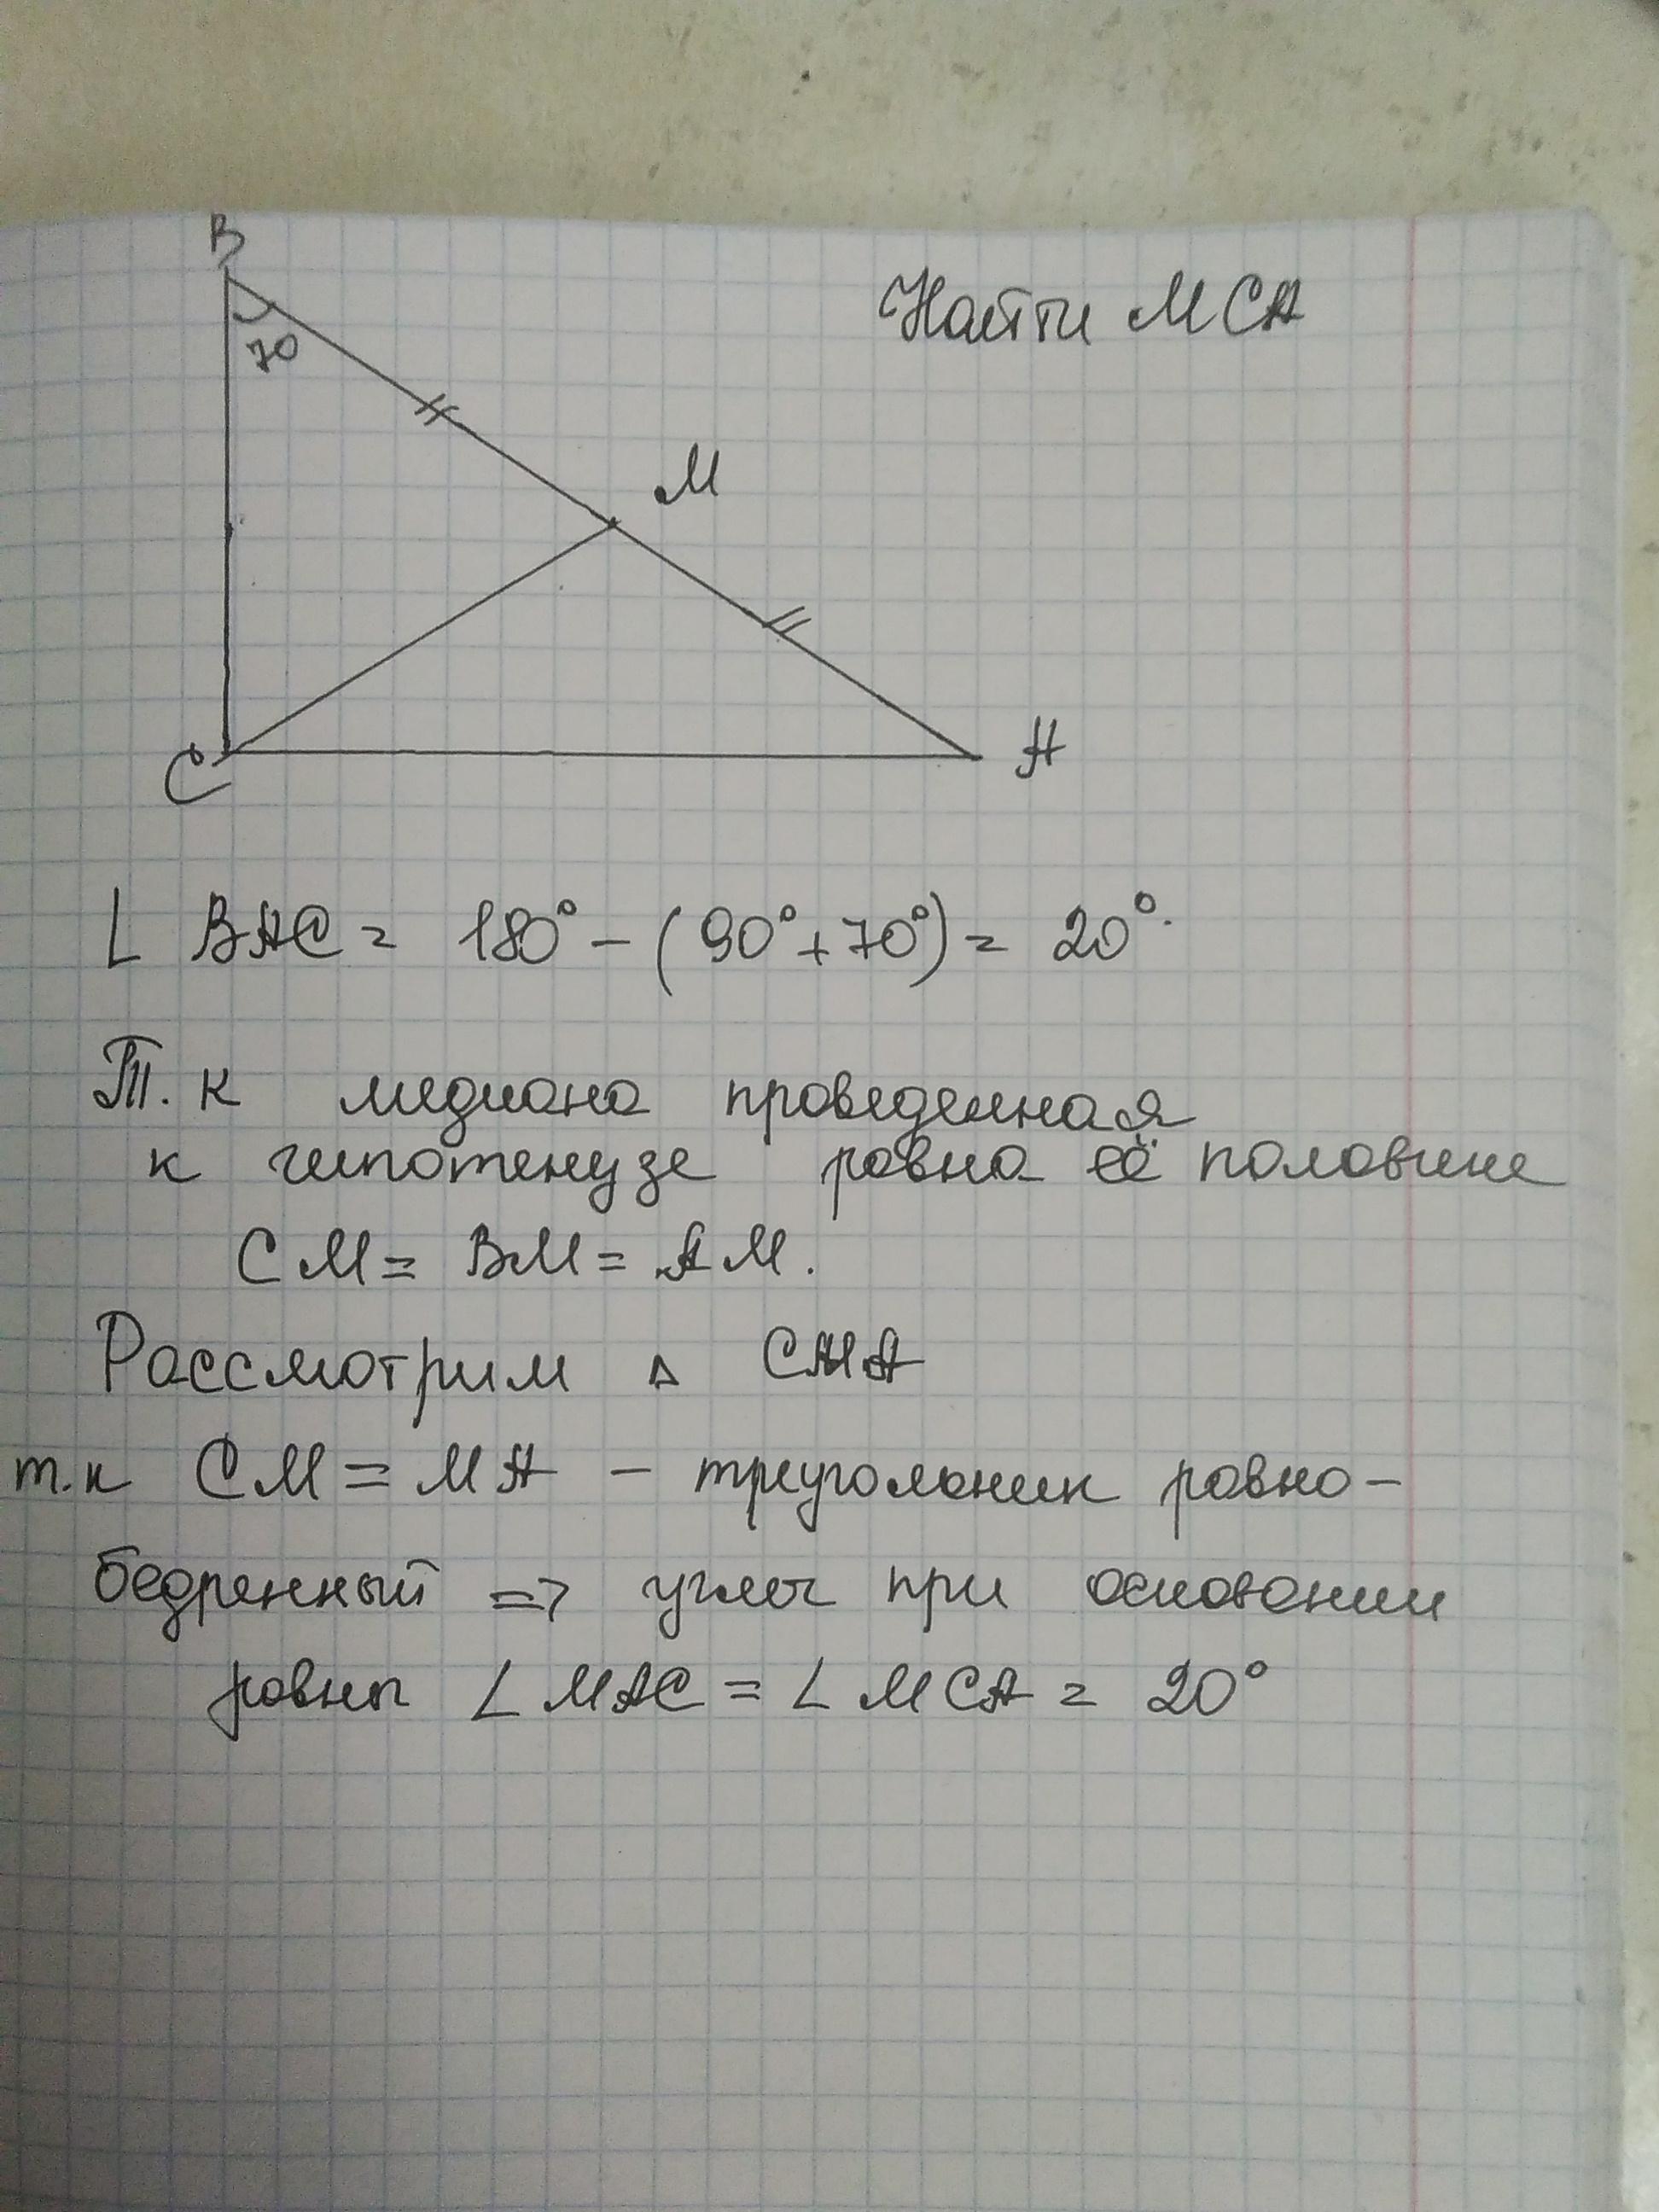 B
Найти MCA
70
M
C
A
∟ BAC = 180° - (90° + 70°) = 20°.
Т. к медиана проведенная
к гипотенузе равна её половине
CM = BM = AM.
Рассмотрим △ CMA
т.к CM = MA - треугольник равно-
бедренный => углы при основании
равны ∠ MAC = ∠ MCA = 20°